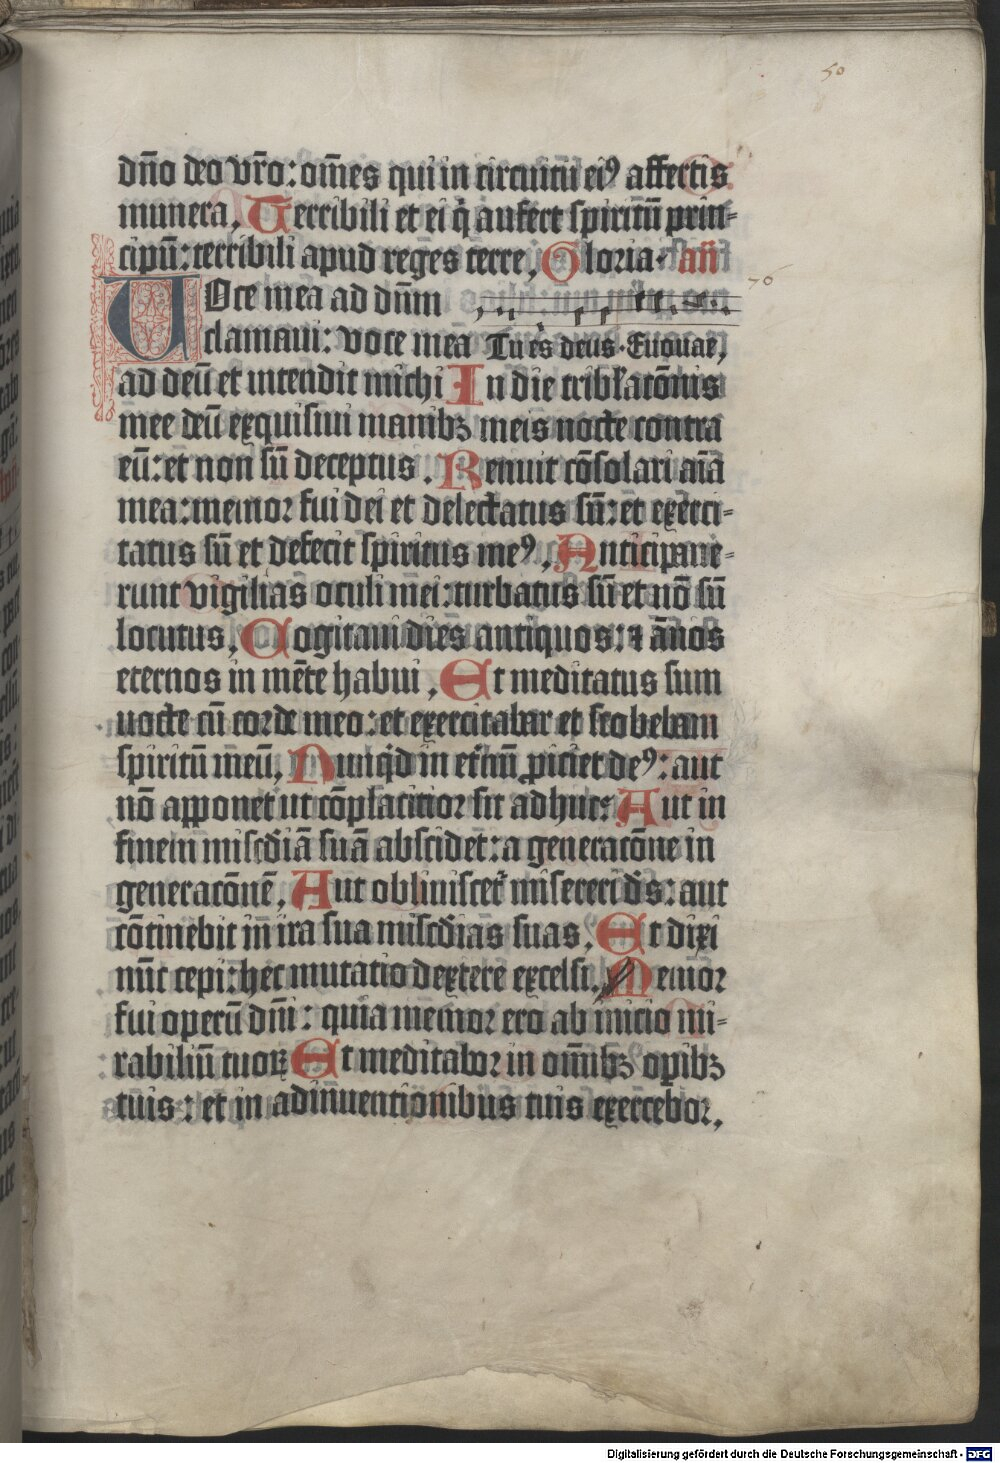 50
dn̄o deo vr̄o: om̄es qui in circuitū eiꝰ affertis
munera, Terribili et ei q̇ aufert spiritū prin⸗
cipū: terribili apud reges terre, Gloria· an̄
76
VOce mea ad dn̄m
clamaui: voce mea Tu es deus· Euouae,
ad deū et intendit michi In die tribl̓atōnis
mee deū exquisiui manibꝫ meis nocte contra
eū: et non sū deceptus. Renuit cōsolari aīa
mea: memor fui dei et delectatus sū: et exerci⸗
tatus sū et defecit spiritus meꝰ, Anticipaue⸗
runt vigilias oculi mei: turbatus sū et nō sū
locutus, Cogitaui dies antiquos: ⁊ annos
eternos in mēte habui, Et meditatus sum
nocte cū corde meo: et exercitabar et scobebam
spiritū meū, Nunq̇d in et̓nū ꝓiciet deꝰ: aut
nō apponet ut cōplacitior sit adhuc: Aut in
finem misc̓diā suā abscidet: a generacōne in
generacōnē, Aut obliuiscet᷑ misereri d̄s: aut
cōtinebit in ira sua misc̓dias suas, Et dixi
nūc cepi: hec mutatio dextere excelsi, Memor
fui operū dn̄i: quia memor ero ab inicio mi⸗
rabiliū tuoꝝ Et meditabor in om̄ibꝫ oꝑibꝫ
tuis: et in adinuentionibus tuis exercebor,
Digitalisierung gefördert durch die Deutsche Forschungsgemeinschaft - DFG